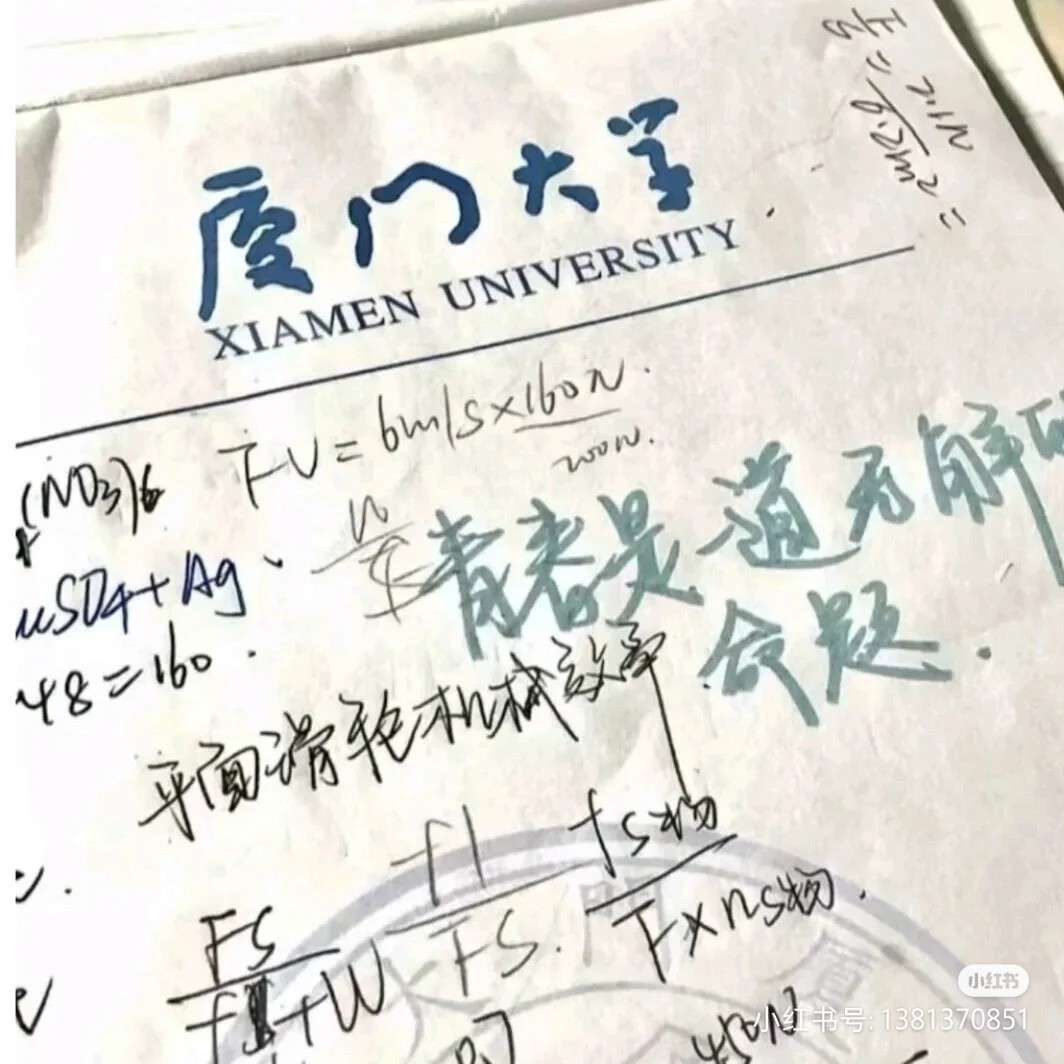 厦门大学
XIAMEN UNIVERSITY
FV = 6m/s × 160N.
200N.
(NO3)6
uSO4 + Ag
48 = 160.
青春是一道无解的
命题.
平面滑轮机械效率
fl
fs物
Fs
Fs.
F×ns物.
+W
小红书
小红书号: 1381370851